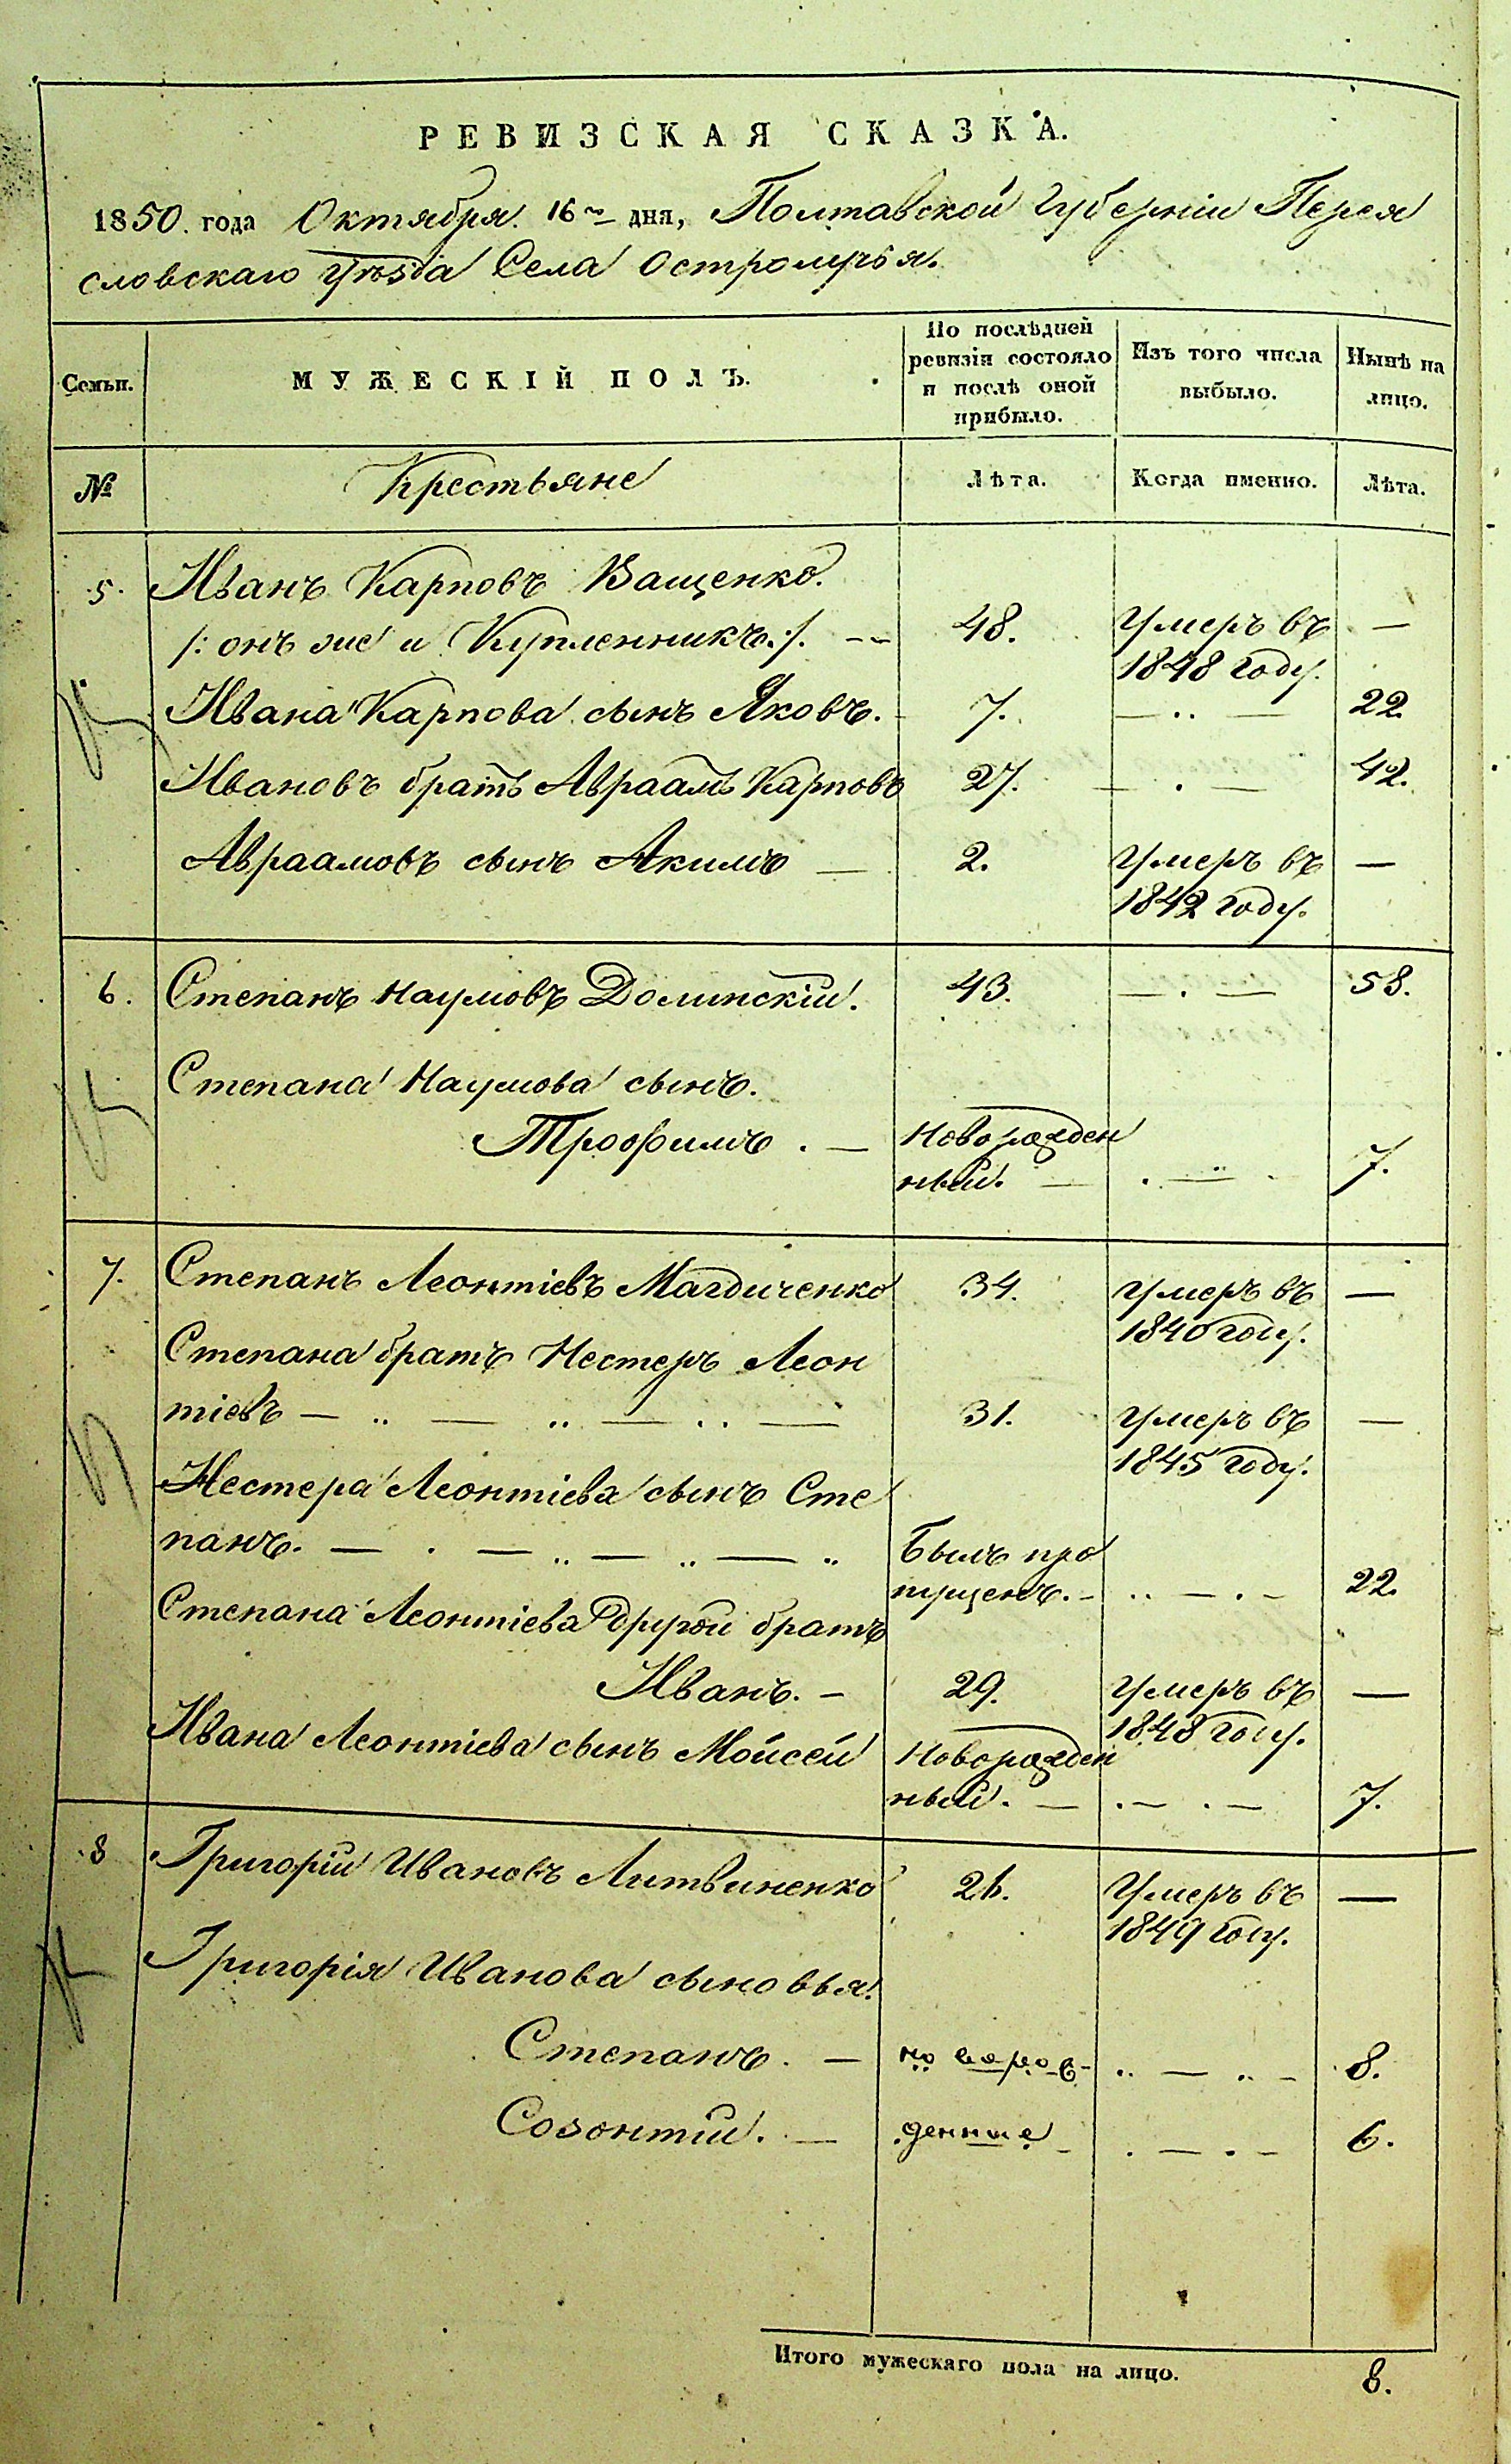 РЕВИЗСКАЯ СКАЗКА.
1850. года Октября. 16го дня, Полтавской Губерніи Перея
словскаго Уѣзда Села Остролучья.
Семьи.
МУЖЕСКІЙ ПОЛЪ.
По послѣдней
ревизіи состояло
и послѣ оной
прибыло.
Изъ того числа
выбыло.
Нынѣ на
лицо.
№
Крестьяне
Лѣта.
Когда именно.
Лѣта.
5. Иванъ Карповъ Ващенко.
/: онъ же и Купленникъ :/. -- 48. Умеръ въ —
1848 году.
Ивана Карпова сынъ Яковъ. 7. — .. — 22.
Ивановъ братъ Авраамъ Карповъ 27. — . — 42.
Авраамовъ сынъ Акимъ — 2. Умеръ въ —
1842 году.
6. Степанъ Наумовъ Долинскій. 43. — . — 58.
Степана Наумова сынъ.
Трофимъ . — Новорожден
ный. — . — . 7.
7. Степанъ Леонтіевъ Магдиченко 34. Умеръ въ —
1840 году.
Степана братъ Нестеръ Леон
тіевъ — .. — .. — .. — 31. Умеръ въ —
1845 году.
Нестера Леонтіева сынъ Сте
панъ. — . — .. — .. — .. Былъ про
пущенъ. - .. — . - 22.
Степана Леонтіева другой братъ
Иванъ. - 29. Умеръ въ —
1848 году.
Ивана Леонтіева сынъ Мойсей Новорожден
ный. — . — . — 7.
8 Григорій Ивановъ Литвиненко 26. Умеръ въ —
1849 году.
Григорія Иванова сыновья:
Степанъ. — новорож- .. — .. - 8.
Созонтій. — денные - . — . - 6.
Итого мужескаго пола на лицо. 8.